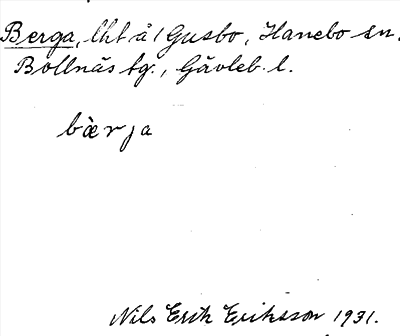 Berga, lht å/ Gusbo, Hanebo sn.
Bollnäs tg., Gävleb. l.
bæ̀rja
Nils Erik Eriksson 1931.